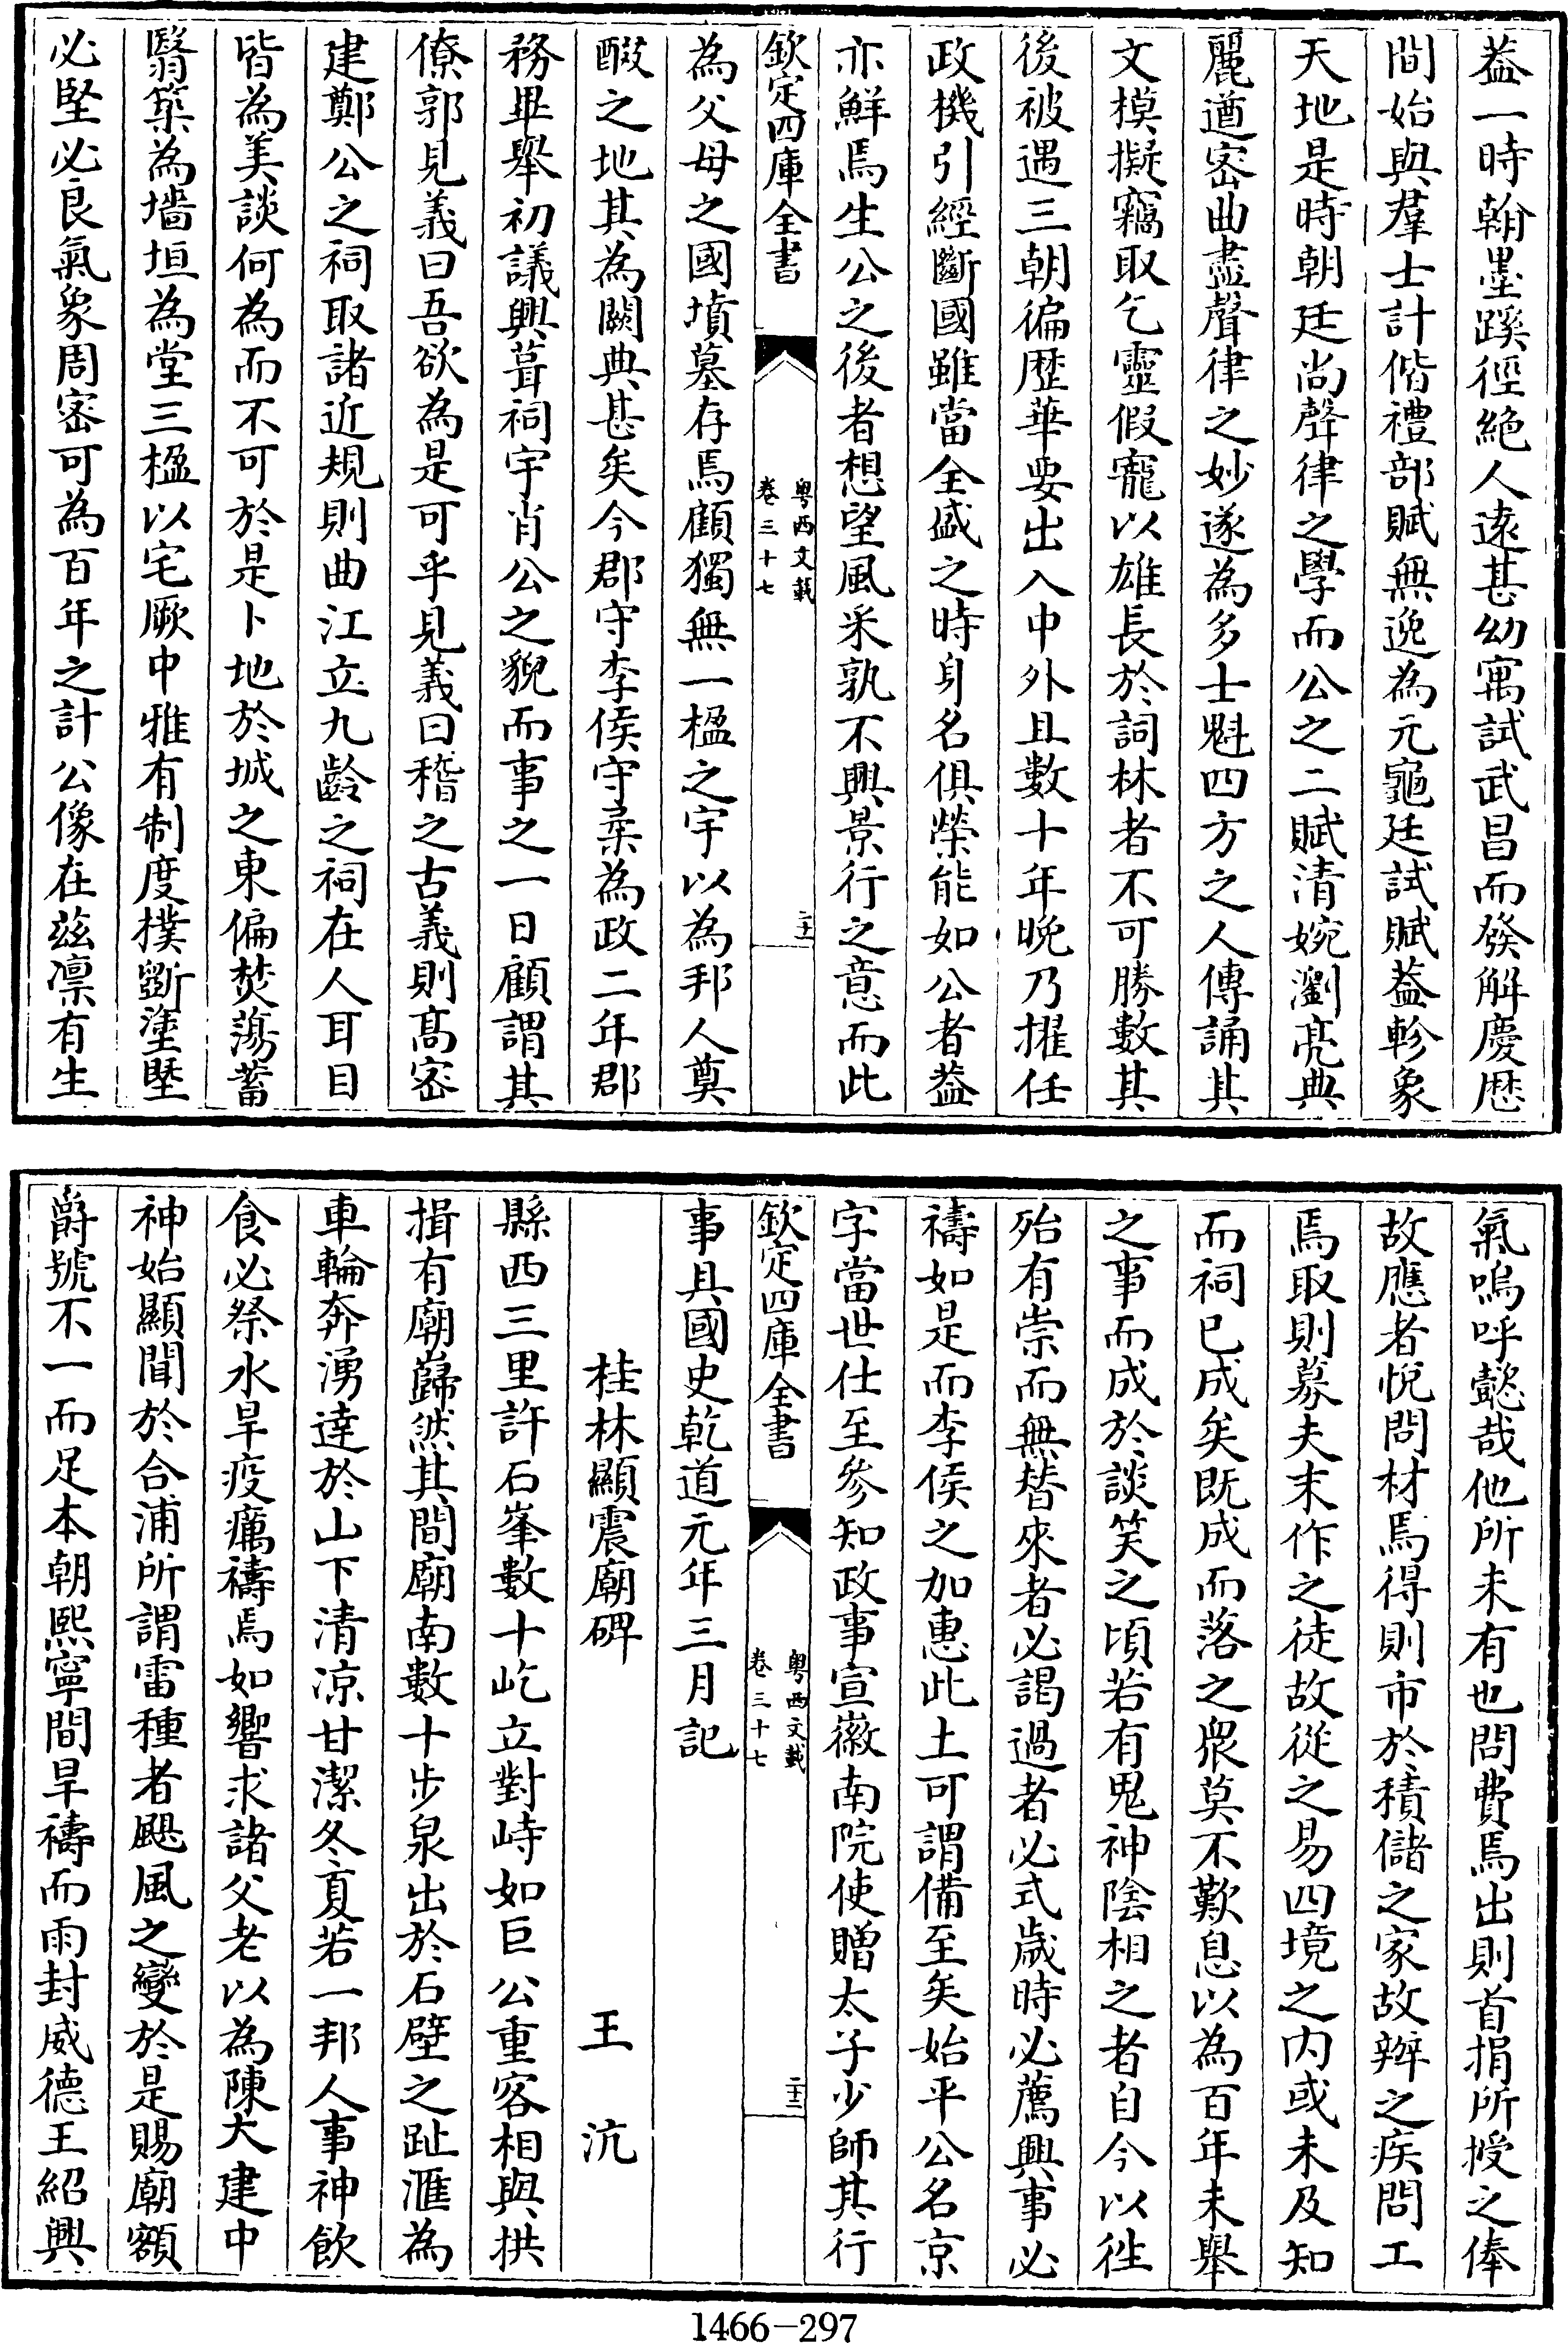 葢一時翰墨蹊徑絶人逺甚幼寓試武昌而發解慶厯
間始與羣士計偕禮部賦無逸為元龜廷試賦葢軫象
天地是時朝廷尚聲律之學而公之二賦清婉瀏亮典
麗遒宻曲盡聲律之妙遂為多士魁四方之人傳誦其
文模擬竊取乞靈假寵以雄長於詞林者不可勝數其
後被遇三朝徧歴華要出入中外且數十年晚乃擢任
政機引經斷國雖當全盛之時身名俱榮能如公者葢
亦鮮焉生公之後者想望風采孰不興景行之意而此
欽定四庫全書
粤西文載
卷三十七
二十二
為父母之國墳墓存焉顧獨無一楹之宇以為邦人奠
醊之地其為闕典甚矣今郡守李侯守柔為政二年郡
務畢舉初議興葺祠宇肖公之貌而事之一日顧謂其
僚郭見義曰吾欲為是可乎見義曰稽之古義則髙宻
建鄭公之祠取諸近規則曲江立九齡之祠在人耳目
皆為美談何為而不可於是卜地於城之東偏焚蕩蓄
翳築為墻垣為堂三楹以宅厥中雅有制度樸斵塗塈
必堅必良氣象周宻可為百年之計公像在兹凛有生
氣嗚呼懿哉他所未有也問費焉出則首捐所授之俸
故應者悅問材焉得則市於積儲之家故辦之疾問工
焉取則募夫末作之徒故從之易四境之内或未及知
而祠已成矣既成而落之衆莫不歎息以為百年未舉
之事而成於談笑之頃若有鬼神隂相之者自今以徃
殆有崇而無替來者必謁過者必式歳時必薦興事必
禱如是而李侯之加惠此土可謂備至矣始平公名京
字當世仕至參知政事宣徽南院使贈太子少師其行
欽定四庫全書
粤西文載
卷三十七
二十三
事具國史乾道元年三月記
桂林顯震廟碑　王沆
縣西三里許石峯數十屹立對峙如巨公重客相與拱
揖有廟巋然其間廟南數十步泉出於石壁之趾滙為
車輪奔湧達於山下清凉甘潔冬夏若一邦人事神飲
食必祭水旱疫癘禱焉如響求諸父老以為陳大建中
神始顯聞於合浦所謂雷種者颶風之變於是賜廟額
爵號不一而足本朝熙寧間旱禱而雨封威德王紹興
1466-297